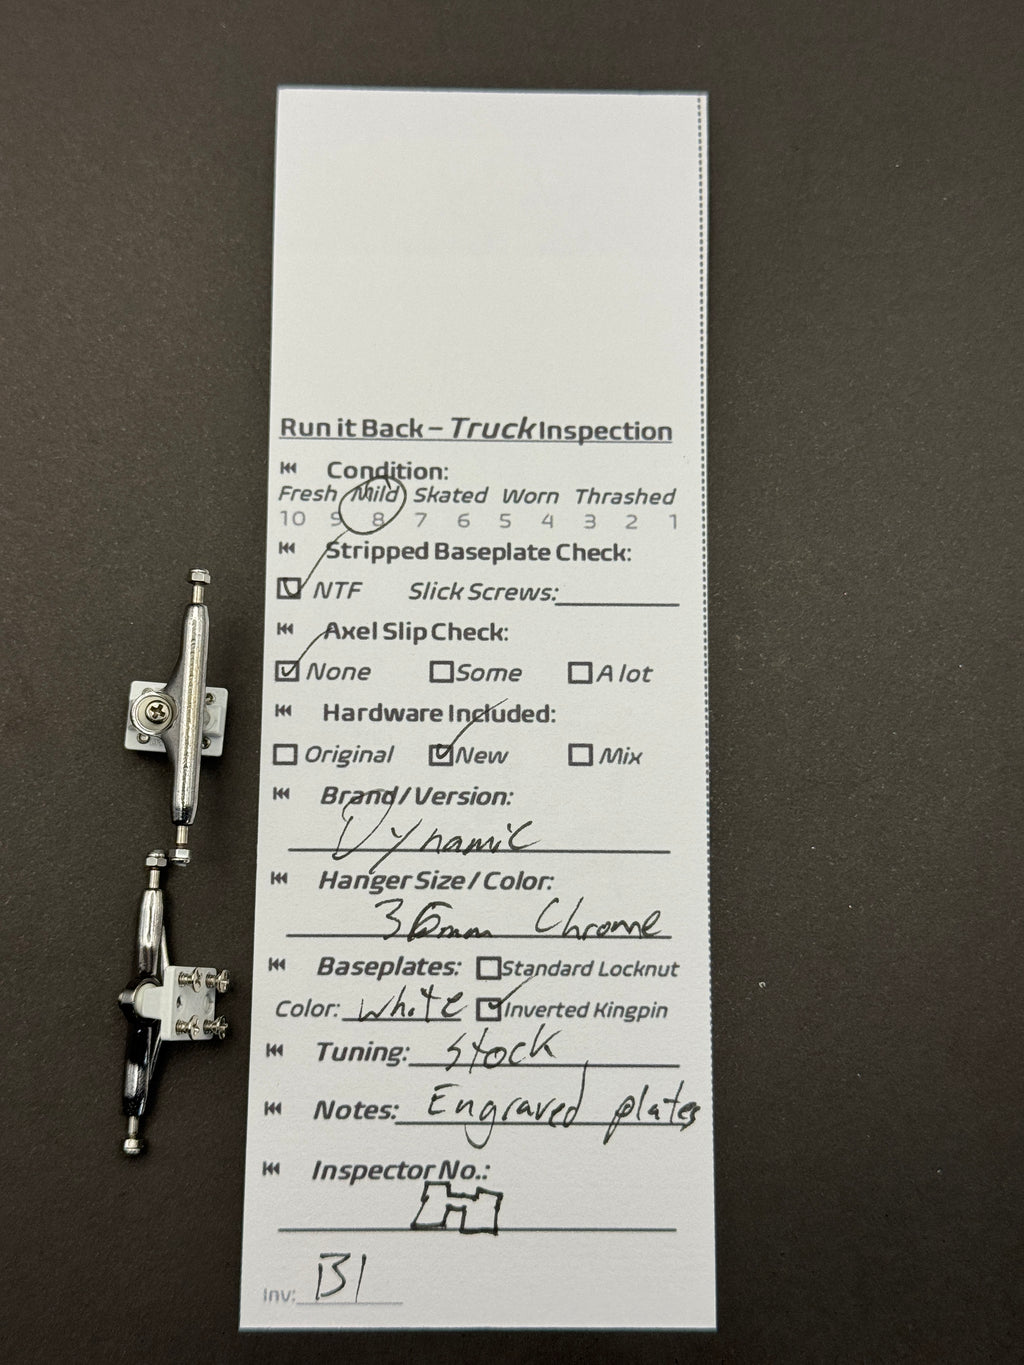 Run it Back – Truck Inspection
Condition:
Fresh Mild Skated Worn Thrashed
10 9 8 7 6 5 4 3 2 1
Stripped Baseplate Check:
NTF Slick Screws:
Axel Slip Check:
None Some A lot
Hardware Included:
Original New Mix
Brand/Version:
Dynamic
Hanger Size/Color:
36mm Chrome
Baseplates: Standard Locknut
Color: white Inverted Kingpin
Tuning: stock
Notes: Engraved plates
Inspector No.:
Inv: